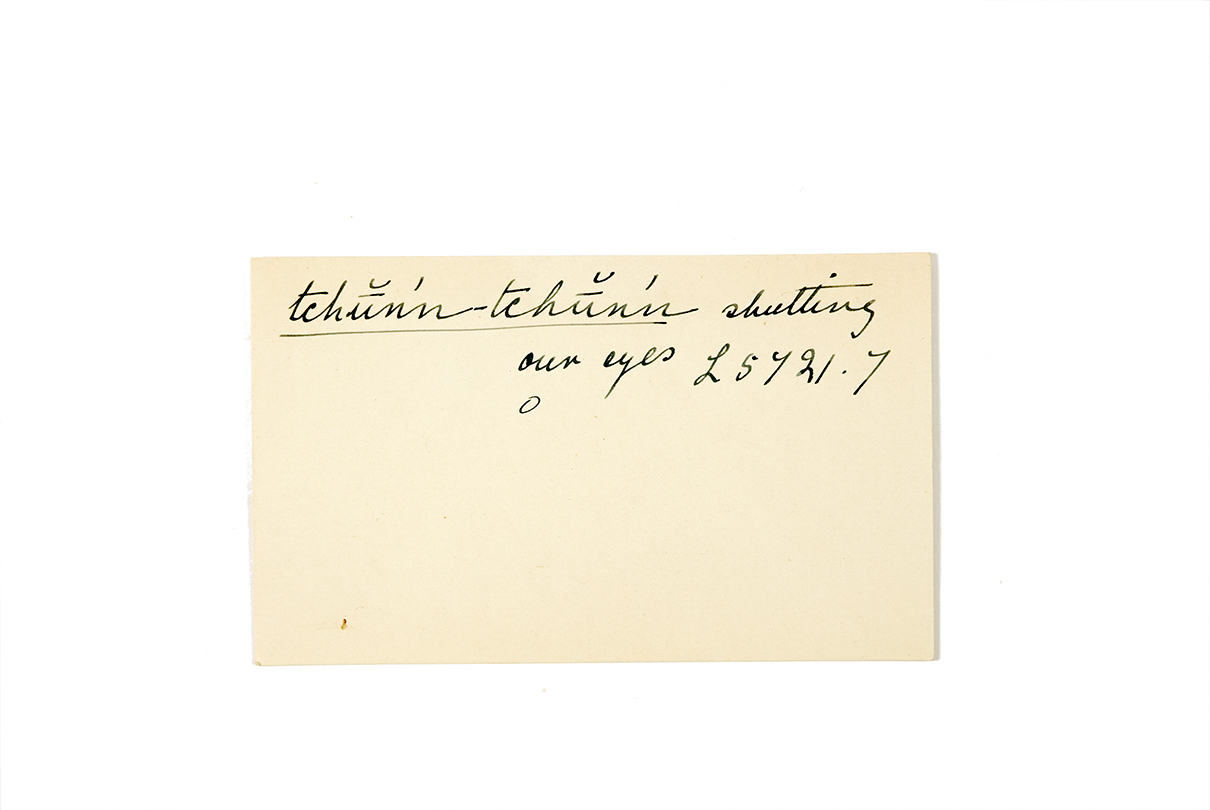 tchŭ̄n'n-tchŭ̄n'n shutting
our eyes L 5721.7
0